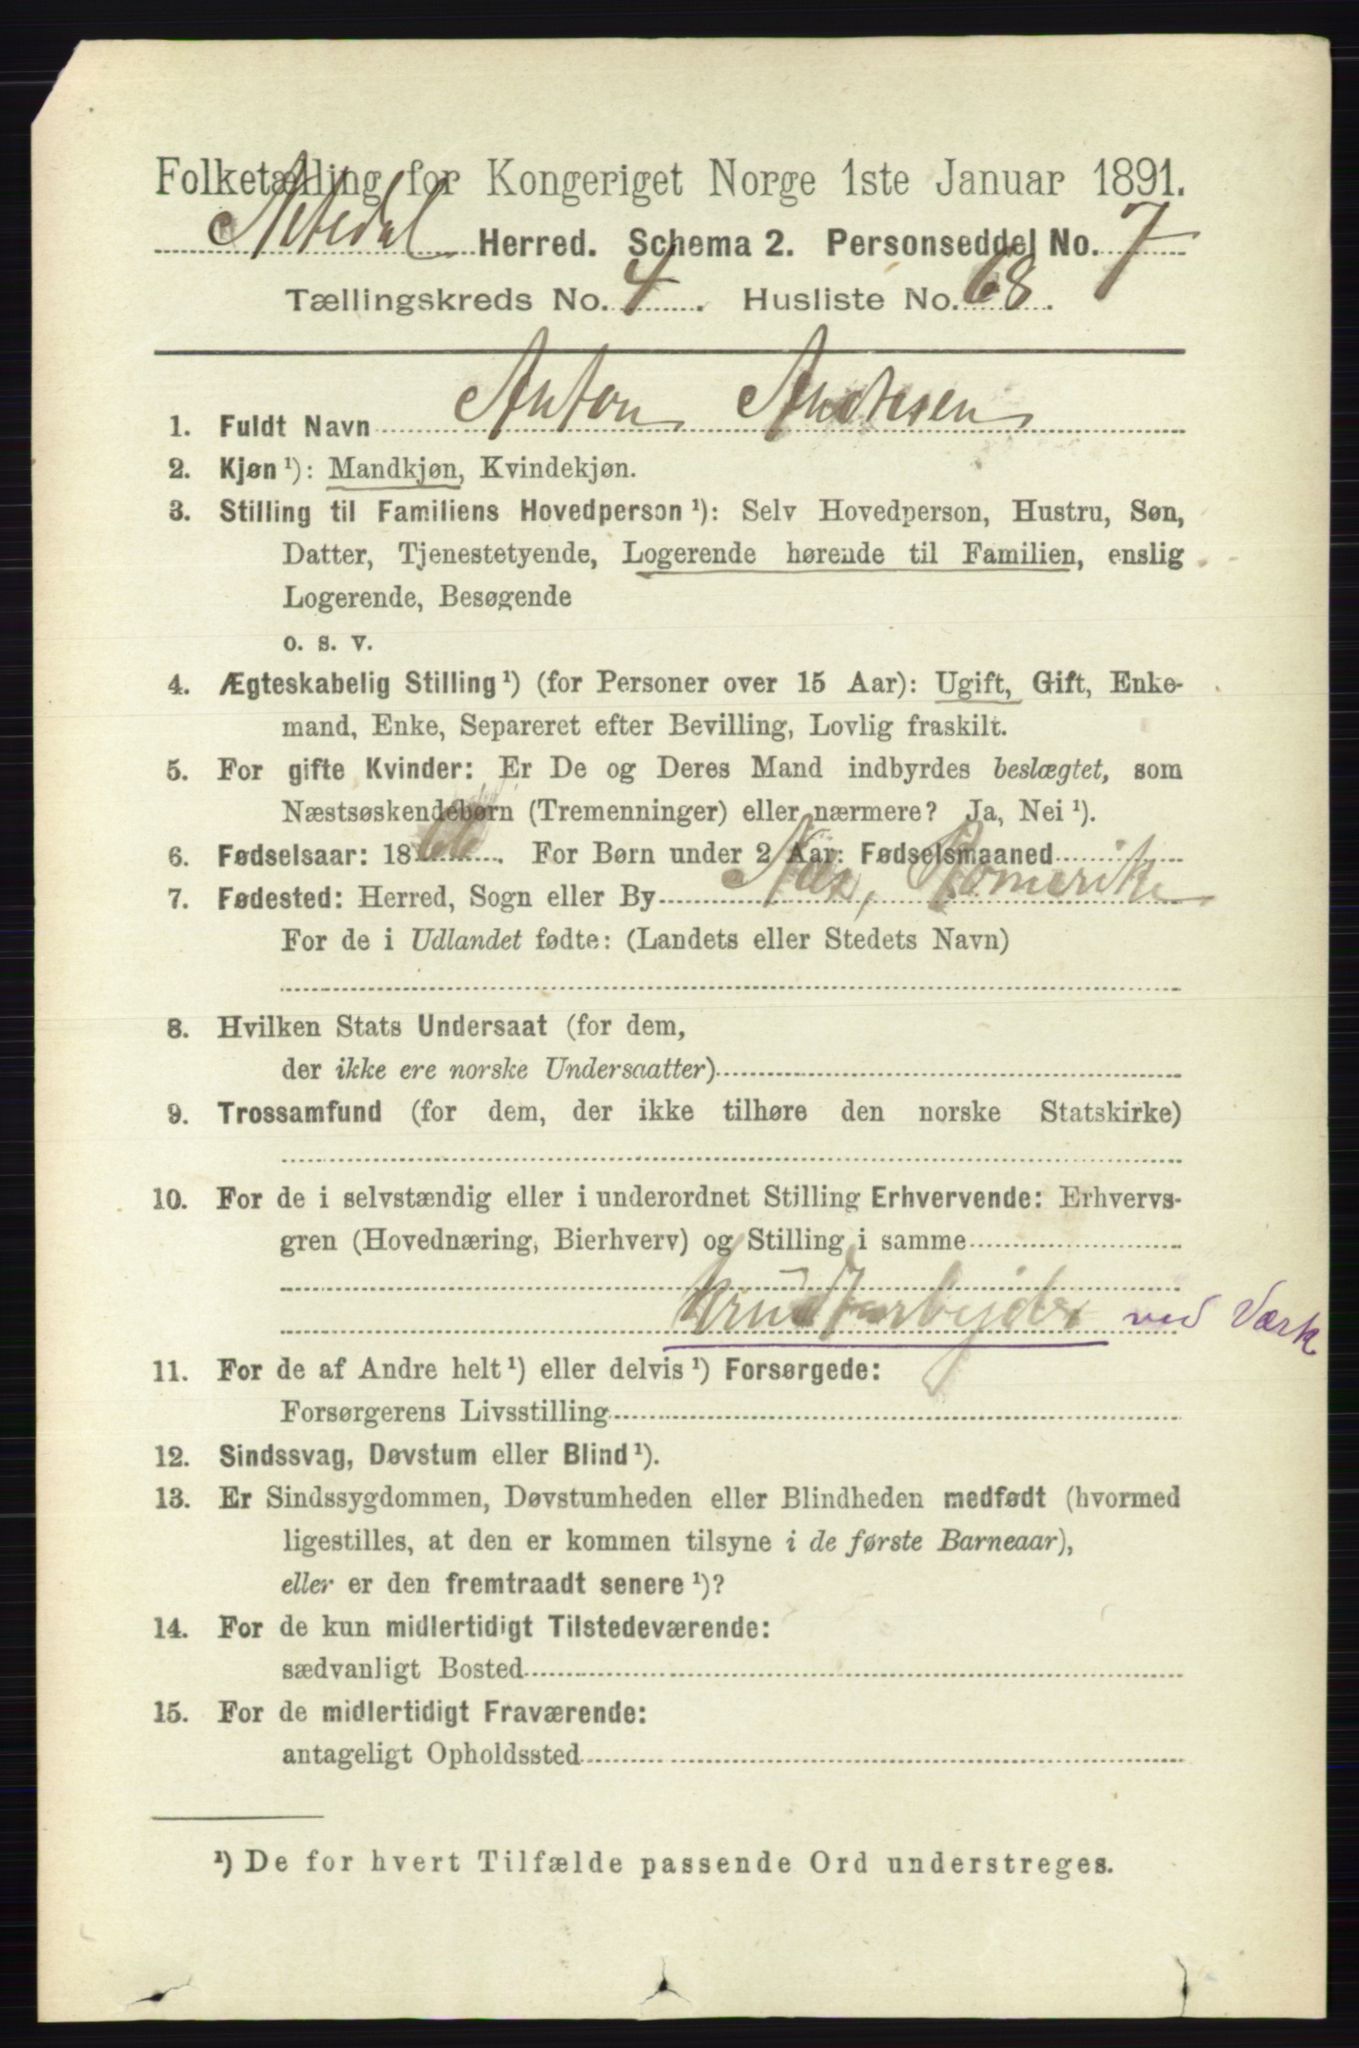 Folketælling for Kongeriget Norge 1ste Januar 1891.
Nitedal Herred. Schema 2. Personseddel No. 7
Tællingskreds No. 4. Husliste No. 68.
1. Fuldt Navn Anton Andresen
2. Kjøn ¹): Mandkjøn, Kvindekjøn.
3. Stilling til Familiens Hovedperson ¹): Selv Hovedperson, Hustru, Søn,
Datter, Tjenestetyende, Logerende hørende til Familien, enslig
Logerende, Besøgende
o. s. v.
4. Ægteskabelig Stilling ¹) (for Personer over 15 Aar): Ugift, Gift, Enke-
mand, Enke, Separeret efter Bevilling, Lovlig fraskilt.
5. For gifte Kvinder: Er De og Deres Mand indbyrdes beslægtet, som
Næstsøskendebørn (Tremenninger) eller nærmere? Ja, Nei ¹).
6. Fødselsaar: 1866. For Børn under 2 Aar: Fødselsmaaned
7. Fødested: Herred, Sogn eller By Næs, Romerike
For de i Udlandet fødte: (Landets eller Stedets Navn)
8. Hvilken Stats Undersaat (for dem,
der ikke ere norske Undersaatter)
9. Trossamfund (for dem, der ikke tilhøre den norske Statskirke)
10. For de i selvstændig eller i underordnet Stilling Erhvervende: Erhvervs-
gren (Hovednæring, Bierhverv) og Stilling i samme
Krudtarbejder ved Værk
11. For de af Andre helt ¹) eller delvis ¹) Forsørgede:
Forsørgerens Livsstilling
12. Sindssvag, Døvstum eller Blind ¹).
13. Er Sindssygdommen, Døvstumheden eller Blindheden medfødt (hvormed
ligestilles, at den er kommen tilsyne i de første Barneaar),
eller er den fremtraadt senere ¹)?
14. For de kun midlertidigt Tilstedeværende:
sædvanligt Bosted
15. For de midlertidigt Fraværende:
antageligt Opholdssted
¹) De for hvert Tilfælde passende Ord understreges.